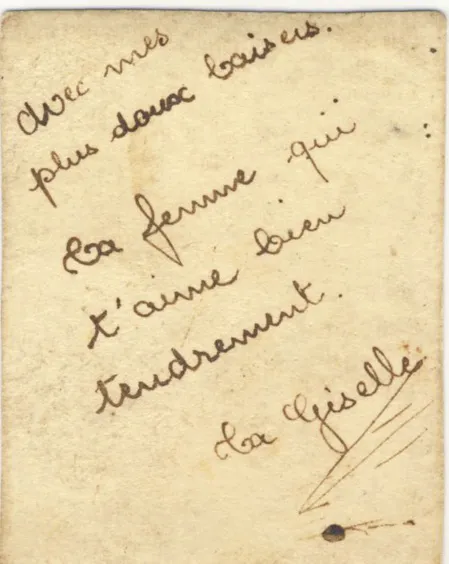 avec mes
plus doux baisers.
ta femme qui
t'aime bien
tendrement.
ta Giselle